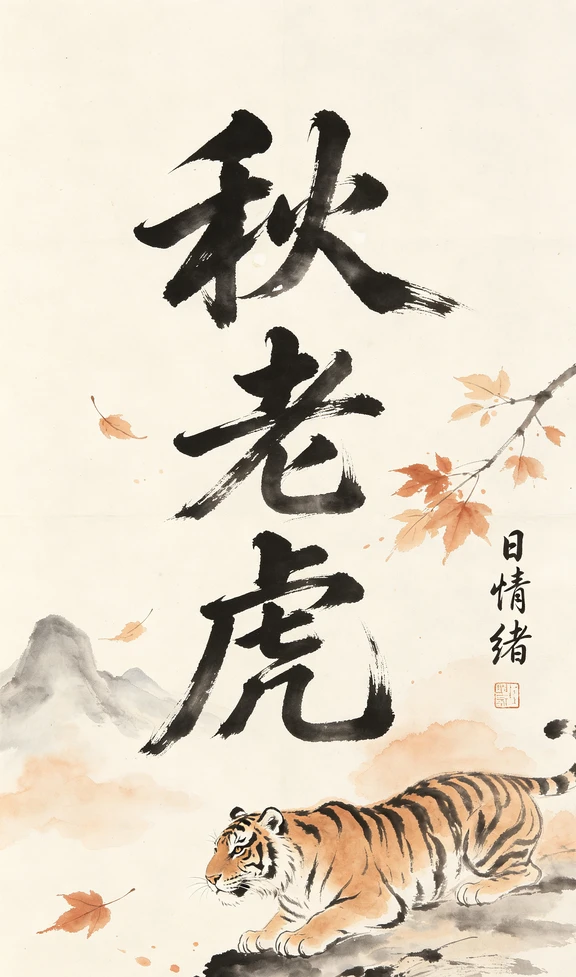 秋老虎
日情绪